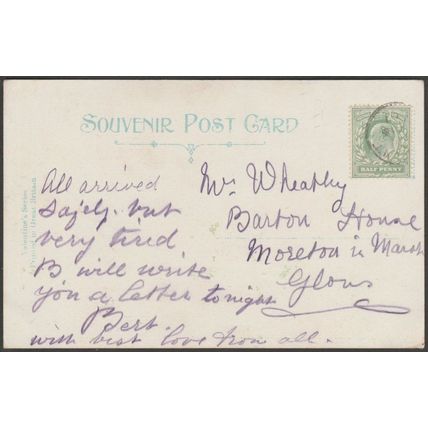 SOUVENIR POST CARD
HALF PENNY
Valentine's Series
Printed in Great Britain
All arrived
safely. but
very tired
B will write
you a letter tonight
Bert.
with best love from all.
Mrs Wheatley
Barton House
Moreton in Marsh
Glous